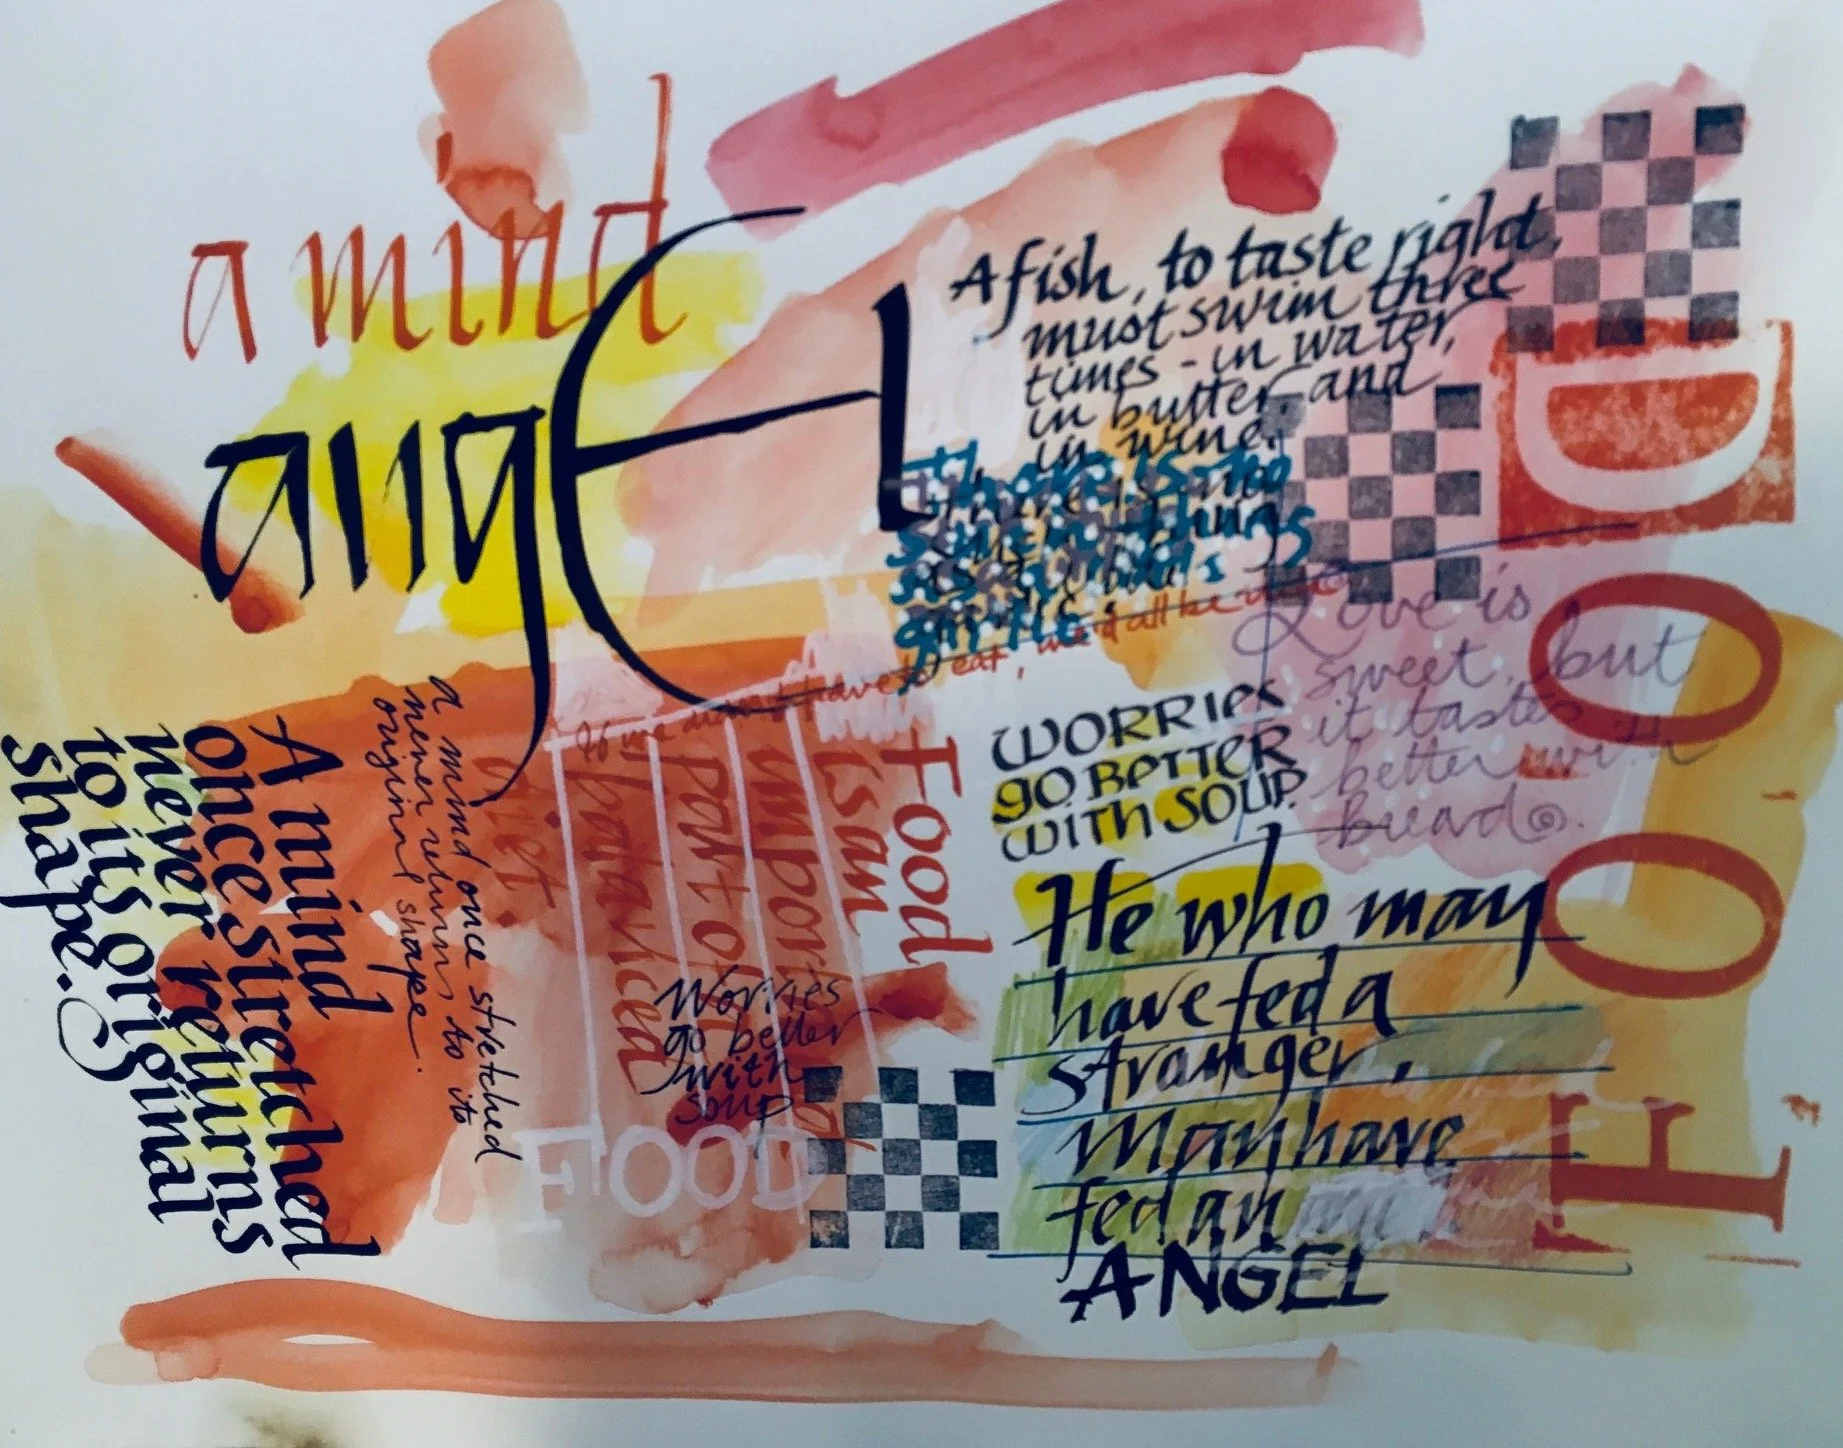 a mind
angEl
A fish, to taste right,
must swim three
times - in water,
in butter, and
in wine.
There is no
such thing
as a
little
If we didn't have to eat, we'd all be rich
Love is
sweet, but
it tastes
better with
bread.
WORRIES
GO BETTER
WITH SOUP.
He who may
have fed a
stranger,
May have
fed an
ANGEL
FOOD
A mind
once stretched
never returns
to its original
shape.
a mind once stretched
never returns to its
original shape.
Food
is an
important
part of a
balanced
diet.
Worries
go better
with
soup
FOOD